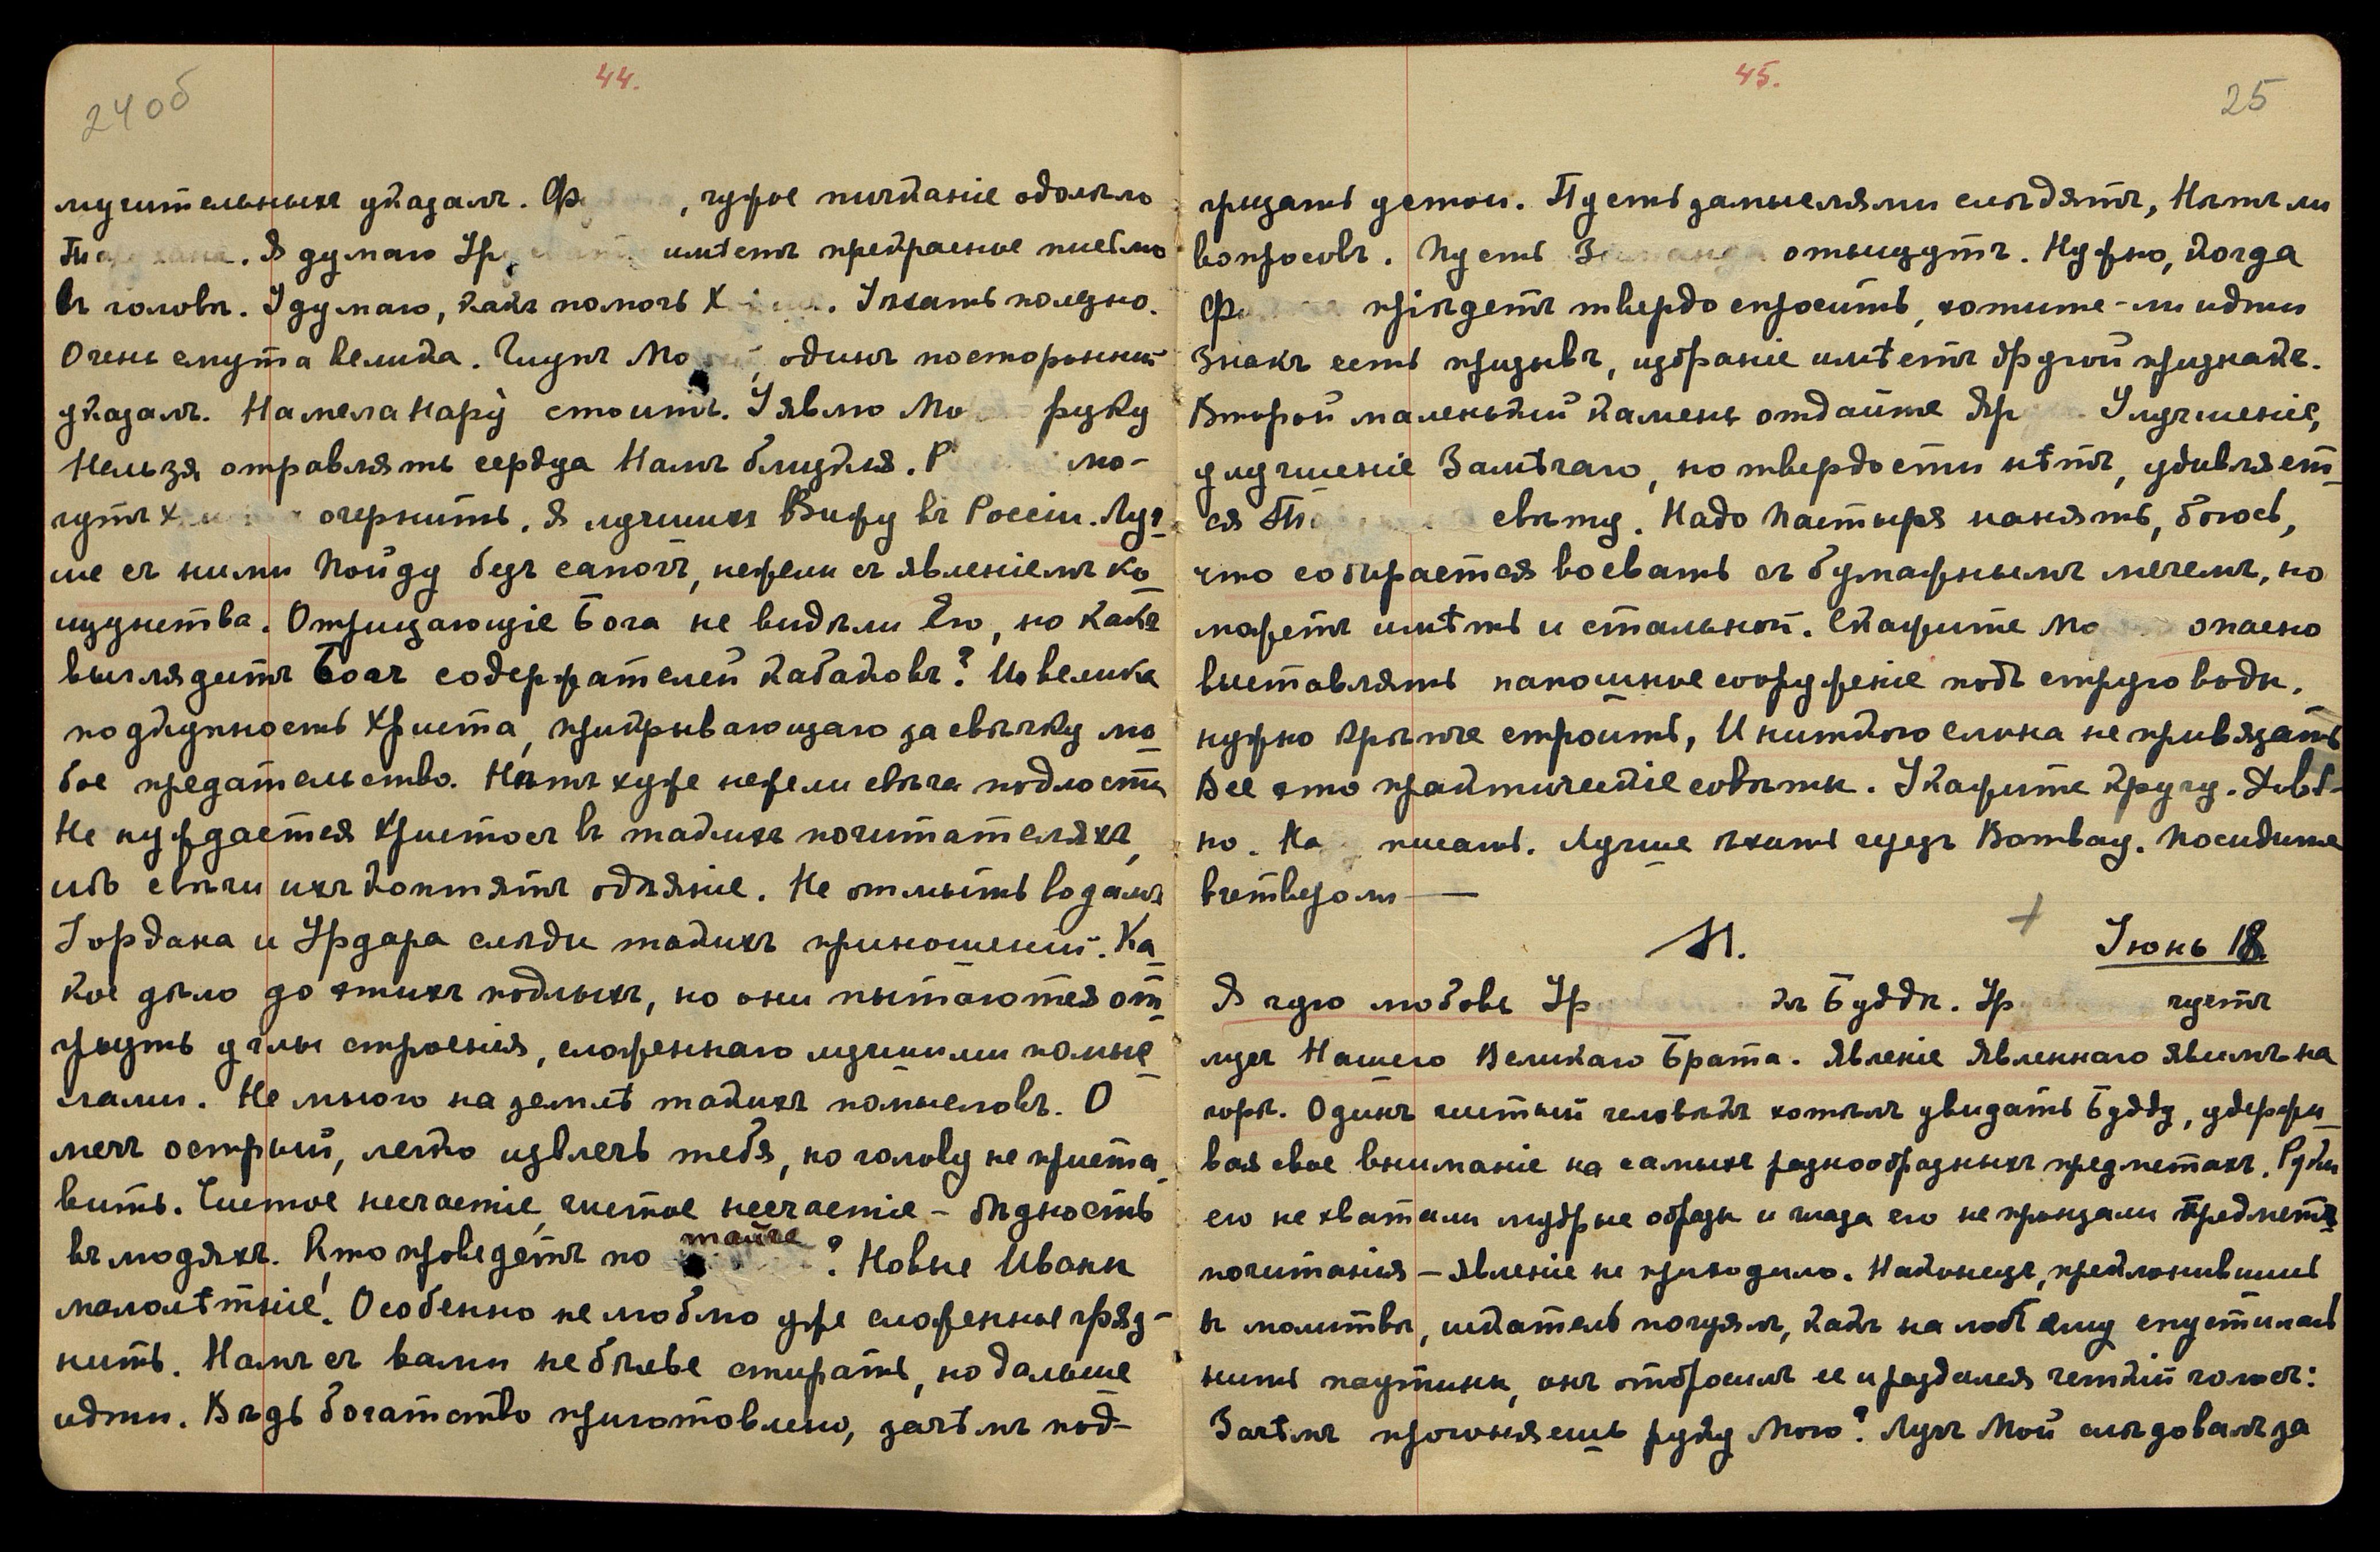 44.
240б
мучительныхъ указалъ. Ф , чужое пичканіе одолѣло
Я думаю Ур имѣетъ прекрасное письмо
въ головѣ. Я думаю, какъ помочь Х Уѣхать полезно.
Очень смута велика. Глупъ Мо одинъ посторонній
указалъ. На мела Нару стоитъ. Явлю Мо руку
Нельзя отравлять сердца Намъ близкія. Р мо-
гутъ Х очернить. Я лучшихъ Вижу въ Россіи. Луч
ше съ ними Пойду безъ сапогъ, нежели съ явленіемъ ко
щунства. Отрицающіе Бога не видѣли Его, но какъ
выглядитъ Богъ содержателей кабаковъ? Ибо велика
подкупность Христа, прикрывающаго за свѣчку лю
бое предательство. Нѣтъ хуже нежели свѣча подлости
Не нуждается Христосъ въ такихъ почитателяхъ,
ибо свѣчи ихъ коптятъ одѣяніе. Не отмыть водамъ
Іордана и Урдара слѣды такихъ приношеній. Ка
кое дѣло до этихъ подлыхъ, но они пытаются от
грызть углы строенія, сложеннаго лучшими помыс
лами. Не много на землѣ такихъ помысловъ. О
мечъ острый, легко извлечь тебя, но голову не приста
вить. Чистое несчастіе, чистое несчастіе – бѣдность
въ людяхъ. Кто проведетъ по тайге ? Новые Иваны
малолѣтніе! Особенно не люблю уже сложенные гряз-
нить. Намъ съ вами не бѣлье стирать, но дальше
идти. Вѣдь богатство приготовлено, зачѣмъ под-
45.
25
рѣзать устои. Пусть за мыслями слѣдятъ, Нѣтъ ли
вопросовъ. Пусть отыщутъ. Нужно, когда
Ф пріѣдетъ твердо спросить, хотите-ли идти
Знакъ есть призывъ, избраніе имѣетъ другой признакъ.
Второй маленькій камень отдайте Яр Улучшеніе,
улучшеніе Замѣчаю, но твердости нѣтъ, удивляет
ся свѣту. Надо Пастыря нанять, боюсь,
что собирается воевать съ бумажнымъ мечемъ, но
можетъ имѣть и стальной. Скажите Мо опасно
выставлять картонное сооруженіе подъ струю воды.
нужно крѣпче строить, И ниткою слона не привязать
Все это практическіе совѣты. Укажите кругу. Довѣ-
но. На писать. Лучше ѣхать черезъ Вотвау. Посидите
вчетверомъ —
М. + Іюнь 18
Я чую любовь Ур къ Буддѣ. Ур чуетъ
лучъ Нашего Великаго Брата. Явленіе Явленнаго явимъ на
горѣ. Одинъ чистый человѣкъ хотѣлъ увидать Будду, удержи
вая свое вниманіе на самыхъ разнообразныхъ предметахъ. Руки
его не хватали мудрые образы и глаза его не пронзали предметъ
почитанія – явленіе не приходило. Наконецъ, преклонившись
въ молитвѣ, искатель почуялъ, какъ на лобъ ему спустилась
нить паутины, онъ отбросилъ ее и раздался четкій голосъ:
Зачѣмъ прогоняешь руку Мою? Лучъ Мой слѣдовалъ за